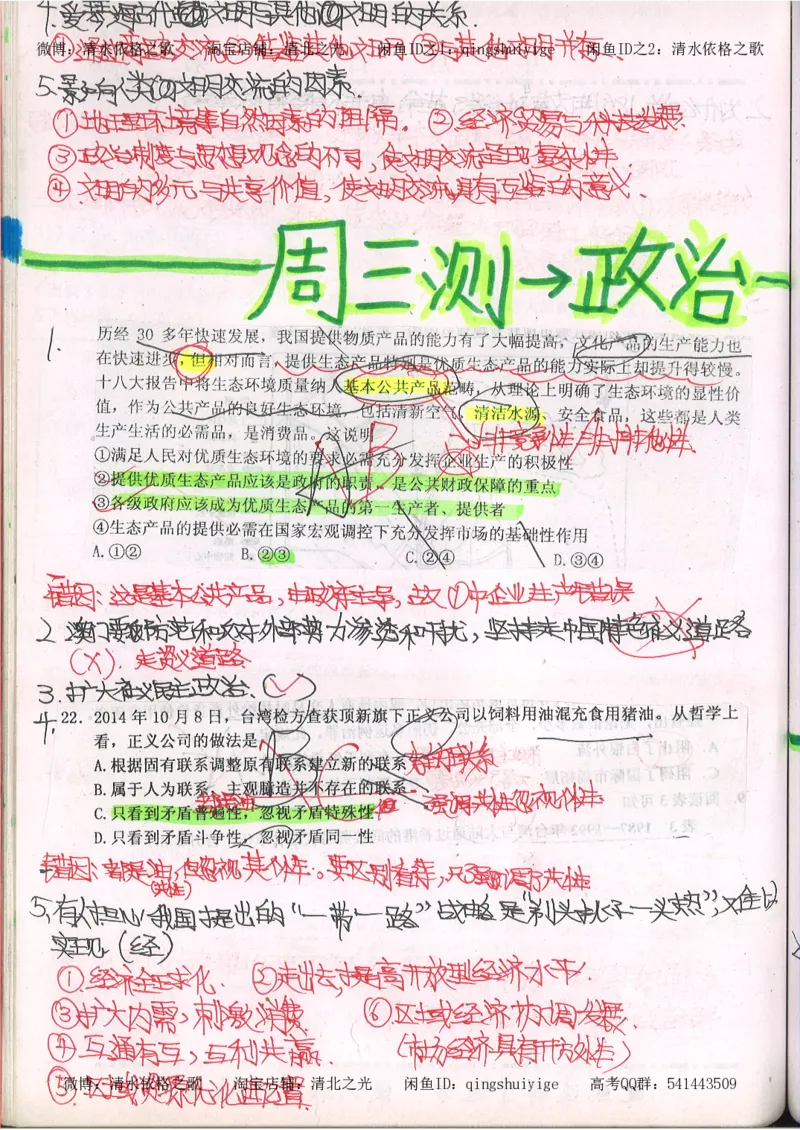 4.爱琴海古代文明与其他文明的关系.
微博：清水依格之歌 淘宝店铺：清北之光 闲鱼ID之1：qingshuiyige 闲鱼ID之2：清水依格之歌
5.影响人类文明交流的因素.
①地理环境等自然因素的阻隔. ②经济贸易与科技发展.
③政治制度与思想观念的不同,使文明交流呈现复杂性.
④文明的多元与共享价值,使文明交流具有互鉴的意义、
周三测→政治
1. 历经 30 多年快速发展，我国提供物质产品的能力有了大幅提高，文化产品的生产能力也
在快速进步，但相对而言，提供生态产品特别是优质生态产品的能力实际上却提升得较慢。
十八大报告中将生态环境质量纳入基本公共产品范畴，从理论上明确了生态环境的显性价
值，作为公共产品的良好生态环境，包括清新空气、清洁水源、安全食品，这些都是人类
生产生活的必需品，是消费品。这说明
→非竞争性与非排他性.
①满足人民对优质生态环境的要求必需充分发挥企业生产的积极性
②提供优质生态产品应该是政府的职责，是公共财政保障的重点
③各级政府应该成为优质生态产品的第一生产者、提供者
④生态产品的提供必需在国家宏观调控下充分发挥市场的基础性作用
A.①② B.②③ C.②④ D.③④
错因:这是基本公共产品,由政府主导,故①中企业生产是错误
2.澳门要防范和反对外部势力渗透和干扰,坚持走中国特色社会主义道路
(×). 走资义道路
3.扩大社会主义民主政治.(✓)
4. 22. 2014 年 10 月 8 日，台湾检方查获顶新旗下正义公司以饲料用油混充食用猪油。从哲学上
看，正义公司的做法是
A.根据固有联系调整原有联系建立新的联系
B.属于人为联系，主观臆造并不存在的联系
强调共性忽视个性
C.只看到矛盾普遍性，忽视矛盾特殊性
D.只看到矛盾斗争性，忽视矛盾同一性
错因:都是油,但忽视其个性。要区别看待,只强调了共性
5.有人担心我国提出的“一带一路”战略是“剃头挑子一头热”,难以
实现(经)
①.经济全球化. ②走出去,提高开放型经济水平.
③扩大内需,刺激消费. ⑥区域经济协调发展.
④互通有互,互利共赢. (市场经济具有开放性)
⑤区域资源优化配置.
微博：清水依格之歌 淘宝店铺：清北之光 闲鱼ID：qingshuiyige 高考QQ群：541443509